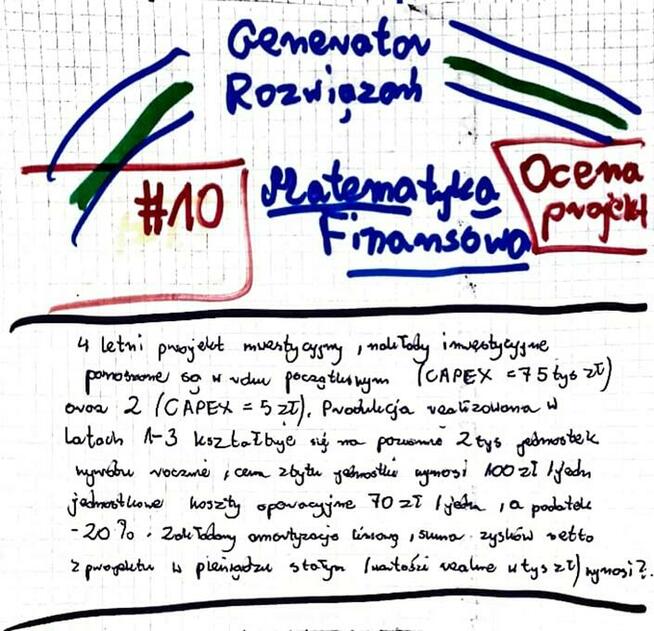 Generator
Rozwiązań
#10
Matematyka
Finansowa
Ocena
projekt
4 letni projekt inwestycyjny, nakłady inwestycyjne
ponoszone są w roku początkowym (CAPEX = 75 tys zł)
oraz 2 (CAPEX = 5 zł). Produkcja realizowana w
latach 1-3 kształtuje się na poziomie 2 tys jednostek
wyrobu rocznie, cena zbytu jednostki wynosi 100 zł/jedn
jednostkowe koszty operacyjne 70 zł/jedn, a podatek
-20%. Zakładamy amortyzację liniową, suma zysków netto
z projektu w pieniądzu stałym (wartości realne w tys zł) wynosi?